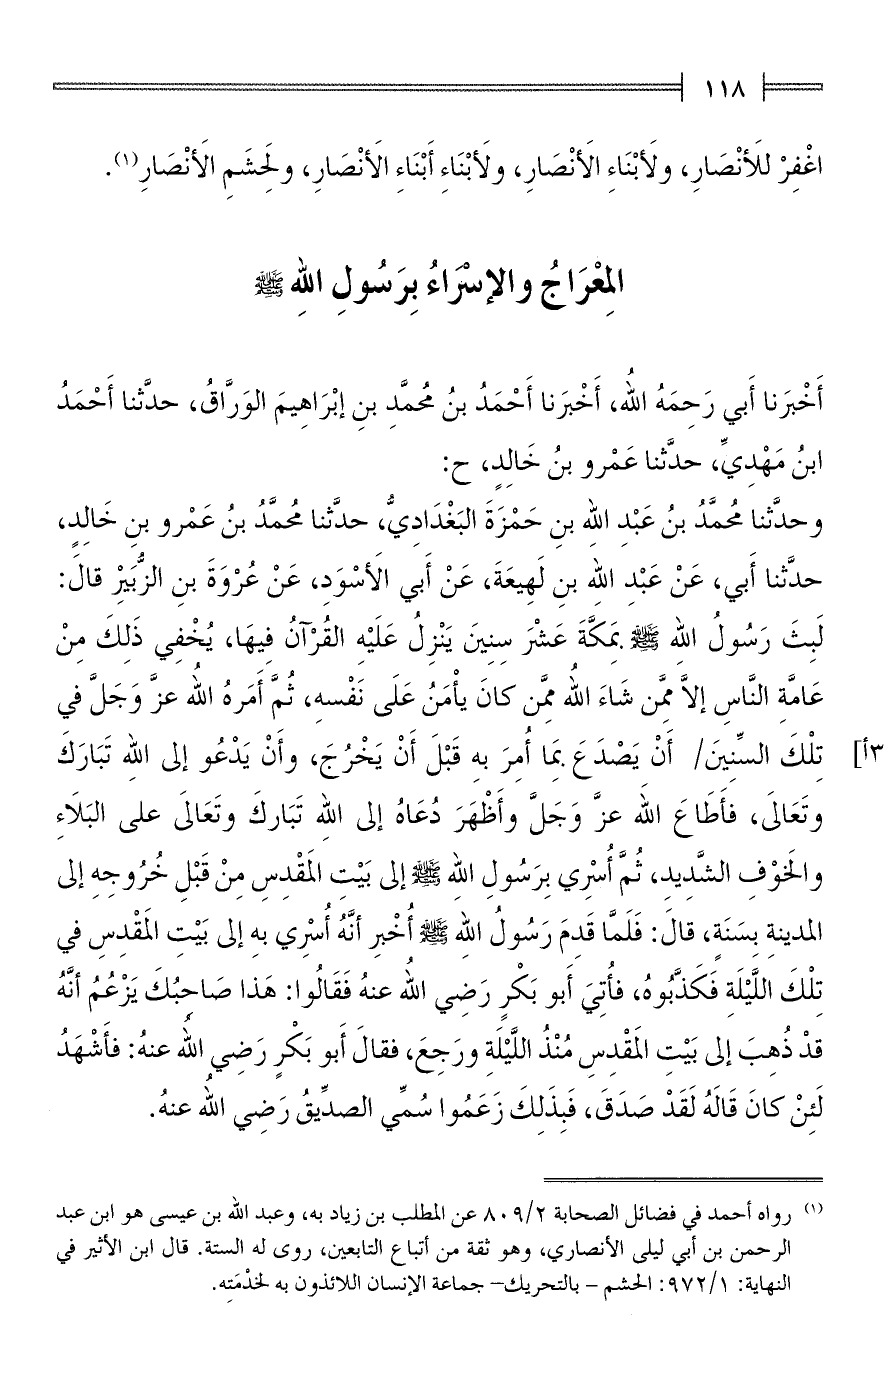 ١١٨
اغْفِرْ للَأنْصَارِ، ولَأبْنَاءِ الَأنْصَارِ، ولَأبْنَاءِ أَبْنَاءِ الَأنْصَارِ، ولَحِشَمِ الَأنْصَارِ(١).
المِعْرَاجُ والإسْرَاءُ بِرَسُولِ اللهِ ﷺ
أَخْبَرَنا أَبي رَحِمَهُ اللهُ، أَخْبَرَنا أَحْمَدُ بنُ مُحمَّدِ بنِ إبْرَاهِيمَ الوَرَّاقُ، حدَّثنا أَحْمَدُ
ابنُ مَهْدِيٍّ، حدَّثنا عَمْرو بنُ خَالِدٍ، ح:
وحدَّثنا مُحمَّدُ بنُ عَبْدِ اللهِ بنِ حَمْزَةَ البَغْدَادِيُّ، حدَّثنا مُحمَّدُ بنُ عَمْرِو بنِ خَالِدٍ،
حدَّثنا أَبي، عَنْ عَبْدِ اللهِ بنِ لَهِيعَةَ، عَنْ أَبي الَأسْوَدِ، عَنْ عُرْوَةَ بنِ الزُّبَيْرْ قالَ:
لَبِثَ رَسُولُ اللهِ ﷺ بِمَكَّةَ عَشْرَ سِنِينَ يَنْزِلُ عَلَيْهِ القُرْآنُ فِيهَا، يُخْفِي ذَلِكَ مِنْ
عَامَّةِ النَّاسِ إلاَّ مِمَّن شَاءَ اللهُ مِمَّن كانَ يأْمَنُ عَلَى نَفْسِهِ، ثُمَّ أَمَرهُ اللهُ عزَّ وَجَلَّ في
تِلْكَ السِّنِينَ/ أَنْ يَصْدَعَ بِمَا أُمِرَ بهِ قَبْلَ أَنْ يَخْرُجَ، وأَنْ يَدْعُو إلى اللهِ تَبَارَكَ
[٣أ
وتَعَالَى، فأَطَاعَ اللهَ عزَّ وَجَلَّ وأَظْهَرَ دُعَاهُ إلى اللهِ تَبَاركَ وتَعَالَى على البَلَاءِ
والخَوْفِ الشَّدِيدِ، ثُمَّ أُسْرِي بِرَسُولِ اللهِ ﷺ إلى بَيْتِ المَقْدِسِ مِنْ قَبْلِ خُرُوجِهِ إلى
المدينةِ بِسَنَةٍ، قالَ: فَلَمَّا قَدِمَ رَسُولُ اللهِ ﷺ أُخْبِر أنَّهُ أُسْرِي بهِ إلى بَيْتِ المَقْدِسِ في
تِلْكَ اللَّيْلَةِ فَكَذَّبُوهُ، فأُتِيَ أبو بَكْرٍ رَضِي اللهُ عنهُ فَقَالُوا: هَذا صَاحِبُكَ يَزْعُمُ أنَّهُ
قدْ ذُهِبَ إلى بَيْتِ المَقْدِسِ مُنْذُ اللَّيْلَةِ ورَجِعَ، فقالَ أبو بَكْرٍ رَضِي اللهُ عنهُ: فأَشْهَدُ
لَئِنْ كانَ قَالَهُ لَقَدْ صَدَقَ، فَبِذَلِكَ زَعَمُوا سُمِّي الصدِّيقُ رَضِي اللهُ عنهُ.
(١) رواه أحمد في فضائل الصحابة ٨٠٩/٢ عن المطلب بن زياد به، وعبد الله بن عيسى هو ابن عبد
الرحمن بن أبي ليلى الأنصاري، وهو ثقة من أتباع التابعين، روى له الستة. قال ابن الأثير في
النهاية: ٩٧٢/١: الحشم – بالتحريك– جماعة الإنسان اللائذون به لخدْمَتِه.